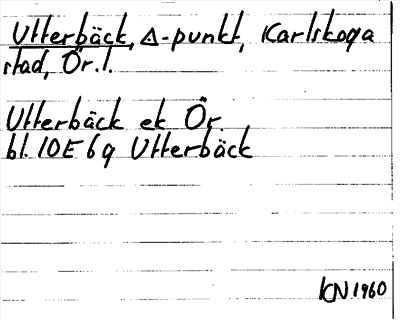 Utterbäck, Δ-punkt, Karlskoga
stad, Ör.l.
Utterbäck ek Ör.
bl. 10E6g Utterbäck
KN 1960